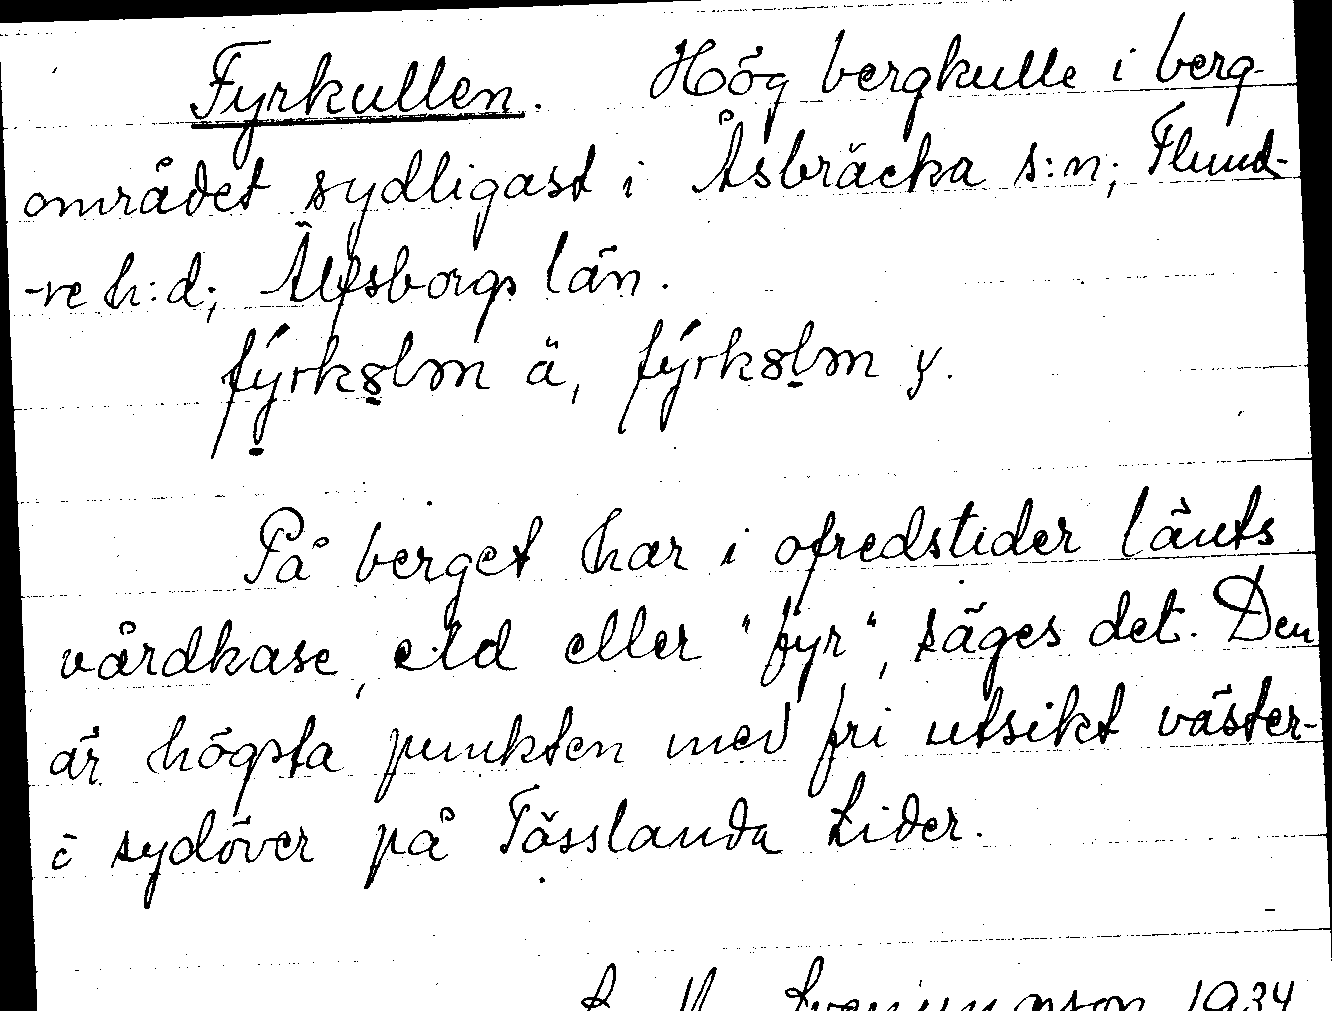 Fyrkullen. Hög bergkulle i berg-
området sydligast i Åsbräcka s:n; Flund-
-re h:d; Älfsborgs län.
fýrkȣlsn ä, fýrkȣlsn y.
På berget har i ofredstider länts
vårdkase, eld eller "fyr", säges det. Den
är högsta punkten med fri utsikt väster-
o sydöver på Tösslanda Lider.
1934